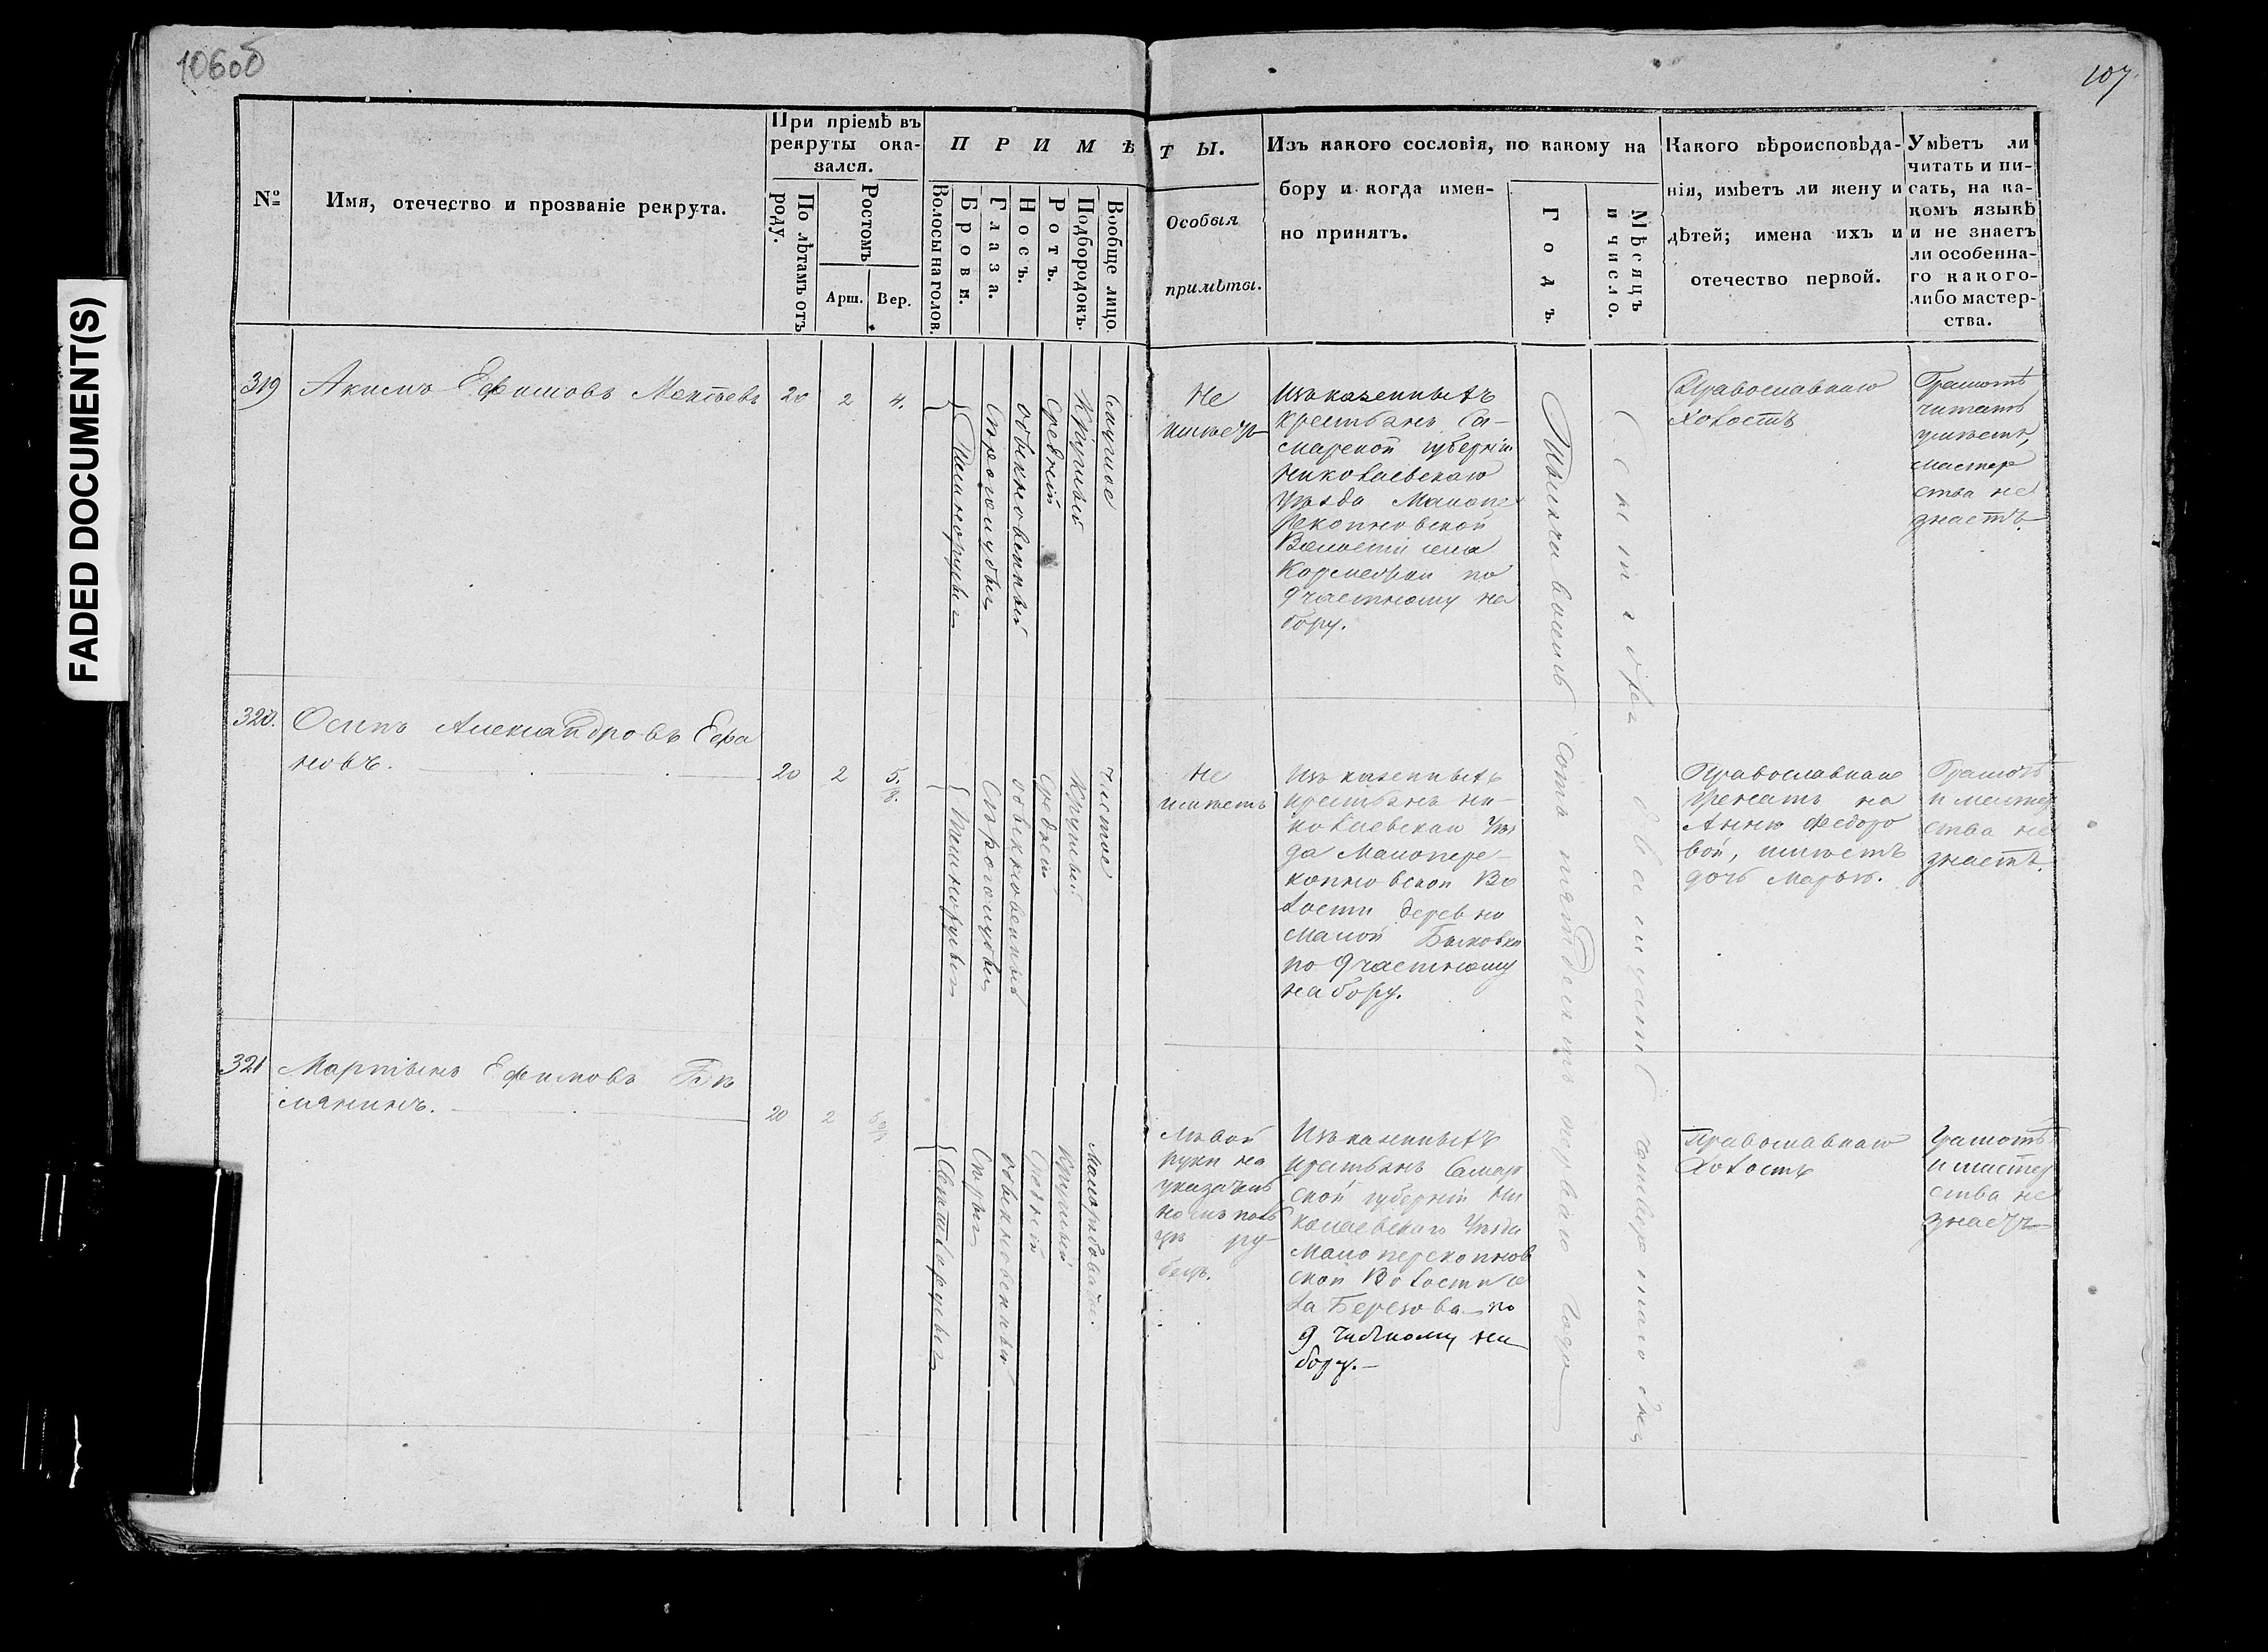 106об
107.
FADED DOCUMENT(S)
№
Имя, отечество и прозваніе рекрута.
При пріемѣ въ
рекруты ока-
зался.
По лѣтамъ отъ
роду.
Ростомъ
Арш.
Вер.
ПРИМѢ
Волосы на голов.
Брови.
Глаза.
Носъ.
Ротъ.
Подбородокъ.
Вообще лицо.
ТЫ.
Особыя
примѣты.
Изъ какого сословія, по какому на
бору и когда имен-
но принятъ.
Годъ.
Мѣсяцъ
и число.
Какого вѣроисповѣда-
нія, имѣетъ ли жену и
дѣтей; имена ихъ и
отечество первой.
Умѣетъ ли
читать и пи-
сать, на ка-
комъ языкѣ
и не знаетъ
ли особенна-
го какого-
либо мастер-
ства.
319
Акимъ Ефимовъ
20
2
4.
Темнорусыя
Сѣроголубыя
обыкновенный
средній
Круглый
Смуглое
Не
имѣетъ
Изъ казенныхъ
крестьянъ Са-
марской губерніи
Николаевскаго
уѣзда Малопе
рекопновской
Волости села
по
9 частному на
бору.
Тысяча восемь сотъ пятьдесятъ перваго года
Сентября двадцать четвертаго дня
Православнаго
Холостъ
Грамотѣ
читать
умѣетъ,
мастер
ства не
знаетъ.
320.
Осипъ Александровъ
новъ.
20
2
5.
/8.
Темнорусыя
Сѣроголубыя
обыкновенный
Средній
Круглый
Чистое
Не
имѣетъ
Изъ казенныхъ
крестьянъ Ни-
колаевскаго Уѣз
да Малопере-
копновской Во
лости деревни
Малой Быковки
по 9 частному
набору.
Православнаго
женатъ на
Аннѣ Федоро
вой, имѣетъ
дочь Марью.
Грамотѣ
и мастер
ства не
знаетъ.
321
Мартынъ Ефимовъ
мянинъ.
20
2
Светлорусыя
Сѣрыя
обыкновенный
Средній
Круглый
Малорябовато.
Лѣвой
руки на
указатель
номъ паль
цѣ ру
бецъ.
Изъ казенныхъ
крестьянъ Самар
ской губерніи Ни
колаевскаго Уѣзда
Малоперекопнов
ской Волости се
ла Березова по
9 частному на
бору.
Православнаго
Холостъ
Грамотѣ
и мастер
ства не
знаетъ